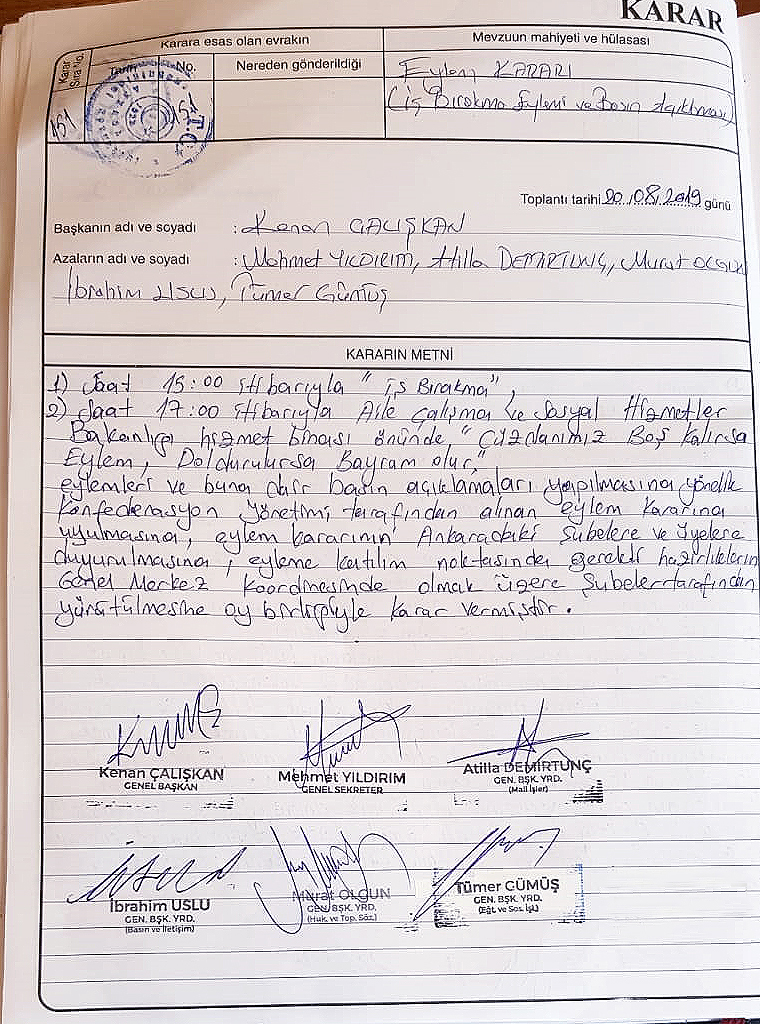 KARAR
Karara esas olan evrakın
Mevzuun mahiyeti ve hülasası
Karar Sıra No.
Tarih
No.
Nereden gönderildiği
Eylem KARARI
(İş Bırakma Eylemi ve Basın Açıklması)
151
151
T.C.
Toplantı tarihi 20/08/2019 günü
Başkanın adı ve soyadı : Kenan ÇALIŞKAN
Azaların adı ve soyadı : Mehmet YILDIRIM, Atilla DEMİRTUNÇ, Murat OLGUN
İbrahim USLU, Tümer Gümüş
KARARIN METNİ
1) Saat 15:00 itibarıyla "İş Bırakma",
2) Saat 17:00 itibarıyla Aile Çalışma ve Sosyal Hizmetler
Bakanlığı hizmet binası önünde, "Cüzdanımız Boş Kalırsa
Eylem, Doldurulursa Bayram olur,"
eylemleri ve buna dair basın açıklamaları yapılmasına yönelik
Konfederasyon yönetimi tarafından alınan eylem kararına
uyulmasına, eylem kararının Ankaradaki Şubelere ve üyelere
duyurulmasına, eyleme katılım noktasında gerekli hazırlıkların
Genel Merkez koordinesinde olmak üzere Şubeler tarafından
yürütülmesine oy birliğiyle karar vermiştir.
Kenan ÇALIŞKAN
GENEL BAŞKAN
Mehmet YILDIRIM
GENEL SEKRETER
Atilla DEMİRTUNÇ
GEN. BŞK. YRD.
(Mali İşler)
İbrahim USLU
GEN. BŞK. YRD.
(Basın ve İletişim)
Murat OLGUN
GEN. BŞK. YRD.
(Huk. ve Top. Söz.)
Tümer GÜMÜŞ
GEN. BŞK. YRD.
(Eğt. ve Sos. İşl.)